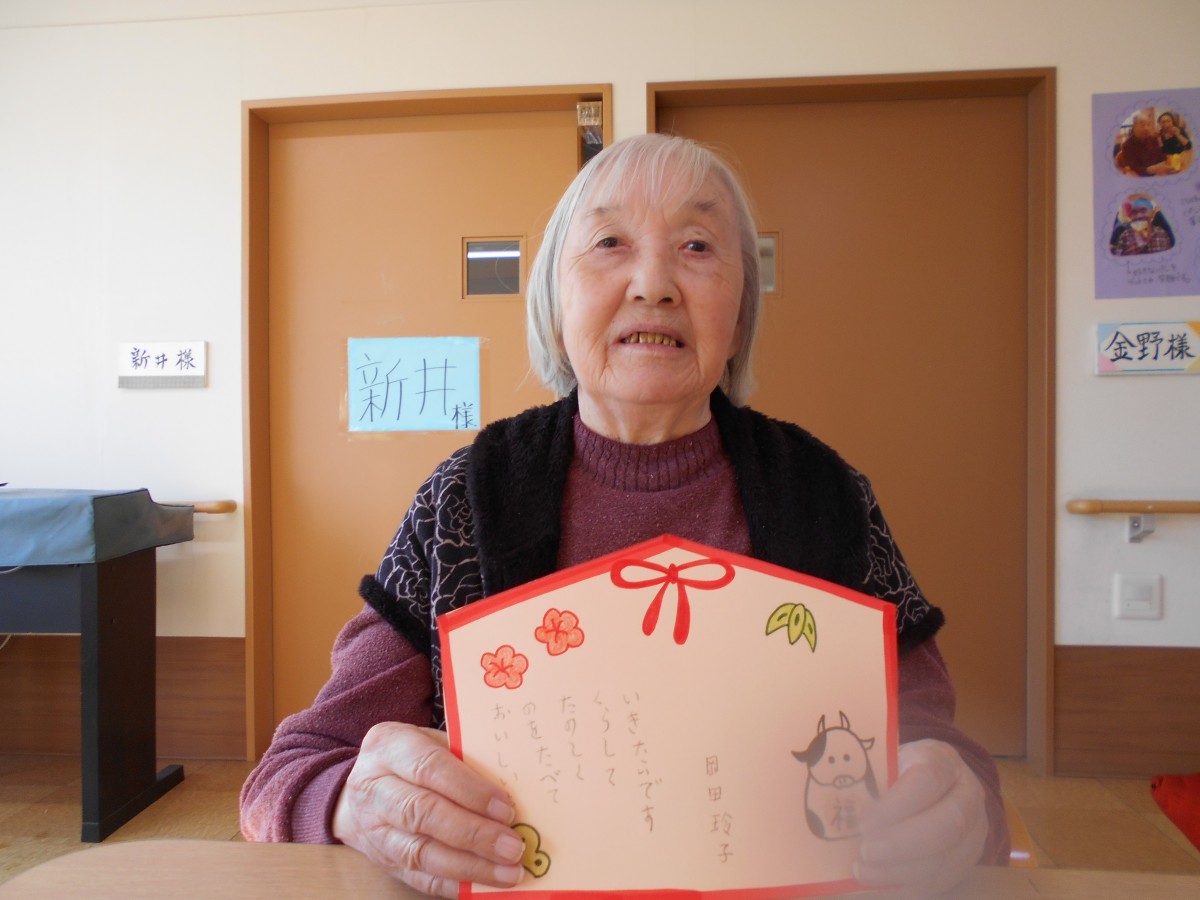 新井様
新井
様
金野様
おいしい
のをたべて
たのしく
くらして
いきたいです
岡田玲子
福